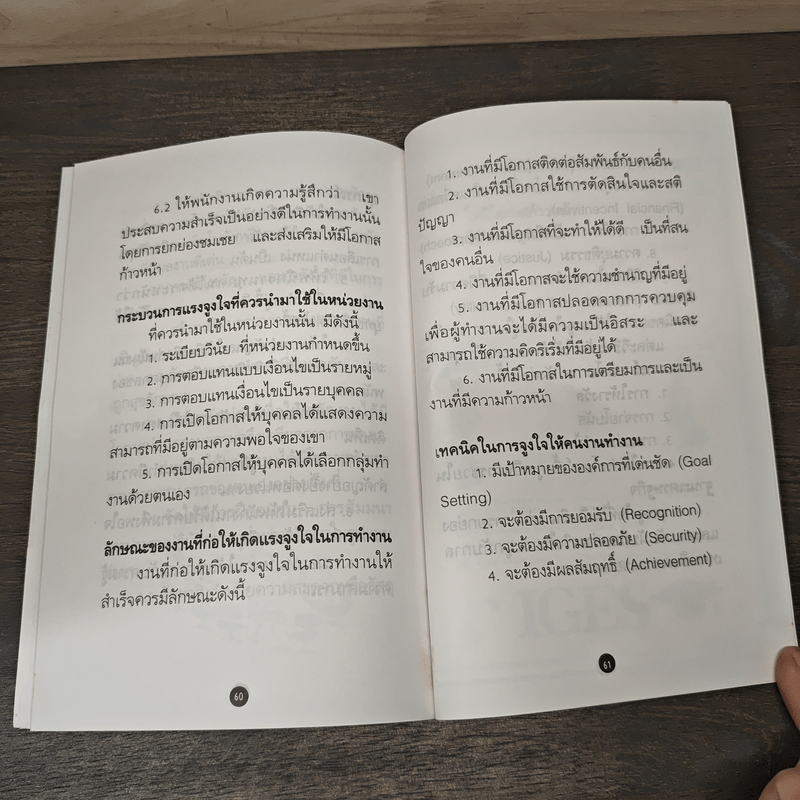 6.2 ให้พนักงานเกิดความรู้สึกว่า เขา
ประสบความสำเร็จเป็นอย่างดีในการทำงานนั้น
โดยการยกย่องชมเชย และส่งเสริมให้มีโอกาส
ก้าวหน้า
กระบวนการแรงจูงใจที่ควรนำมาใช้ในหน่วยงาน
ที่ควรนำมาใช้ในหน่วยงานนั้น มีดังนี้
1. ระเบียบวินัย ที่หน่วยงานกำหนดขึ้น
2. การตอบแทนแบบเงื่อนไขเป็นรายหมู่
3. การตอบแทนเงื่อนไขเป็นรายบุคคล
4. การเปิดโอกาสให้บุคคลได้แสดงความ
สามารถที่มีอยู่ตามความพอใจของเขา
5. การเปิดโอกาสให้บุคคลได้เลือกกลุ่มทำ
งานด้วยตนเอง
ลักษณะของงานที่ก่อให้เกิดแรงจูงใจในการทำงาน
งานที่ก่อให้เกิดแรงจูงใจในการทำงานให้
สำเร็จควรมีลักษณะดังนี้
60
1. งานที่มีโอกาสติดต่อสัมพันธ์กับคนอื่น
2. งานที่มีโอกาสใช้การตัดสินใจและสติ
ปัญญา
3. งานที่มีโอกาสที่จะทำให้ได้ดี เป็นที่สน
ใจของคนอื่น
4. งานที่มีโอกาสจะใช้ความชำนาญที่มีอยู่
5. งานที่มีโอกาสปลอดจากการควบคุม
เพื่อผู้ทำงานจะได้มีความเป็นอิสระ และ
สามารถใช้ความคิดริเริ่มที่มีอยู่ได้
6. งานที่มีโอกาสในการเตรียมการและเป็น
งานที่มีความก้าวหน้า
เทคนิคในการจูงใจให้คนงานทำงาน
1. มีเป้าหมายขององค์การที่เด่นชัด (Goal
Setting)
2. จะต้องมีการยอมรับ (Recognition)
3. จะต้องมีความปลอดภัย (Security)
4. จะต้องมีผลสัมฤทธิ์ (Achievement)
61